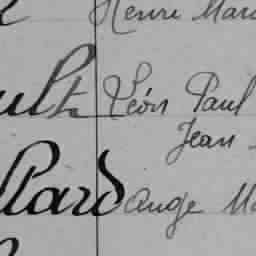 Henri Mar
ult Léon Paul
Jean
llard Ange Ma